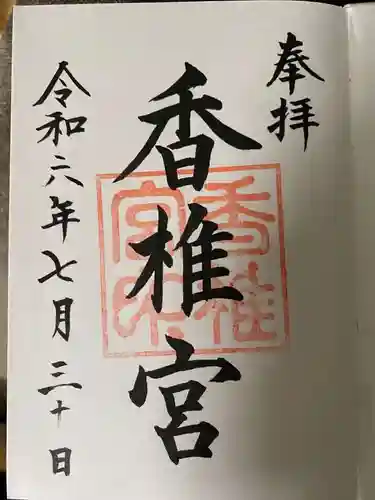 奉拝
香椎宮
香椎宮印
令和六年七月三十日